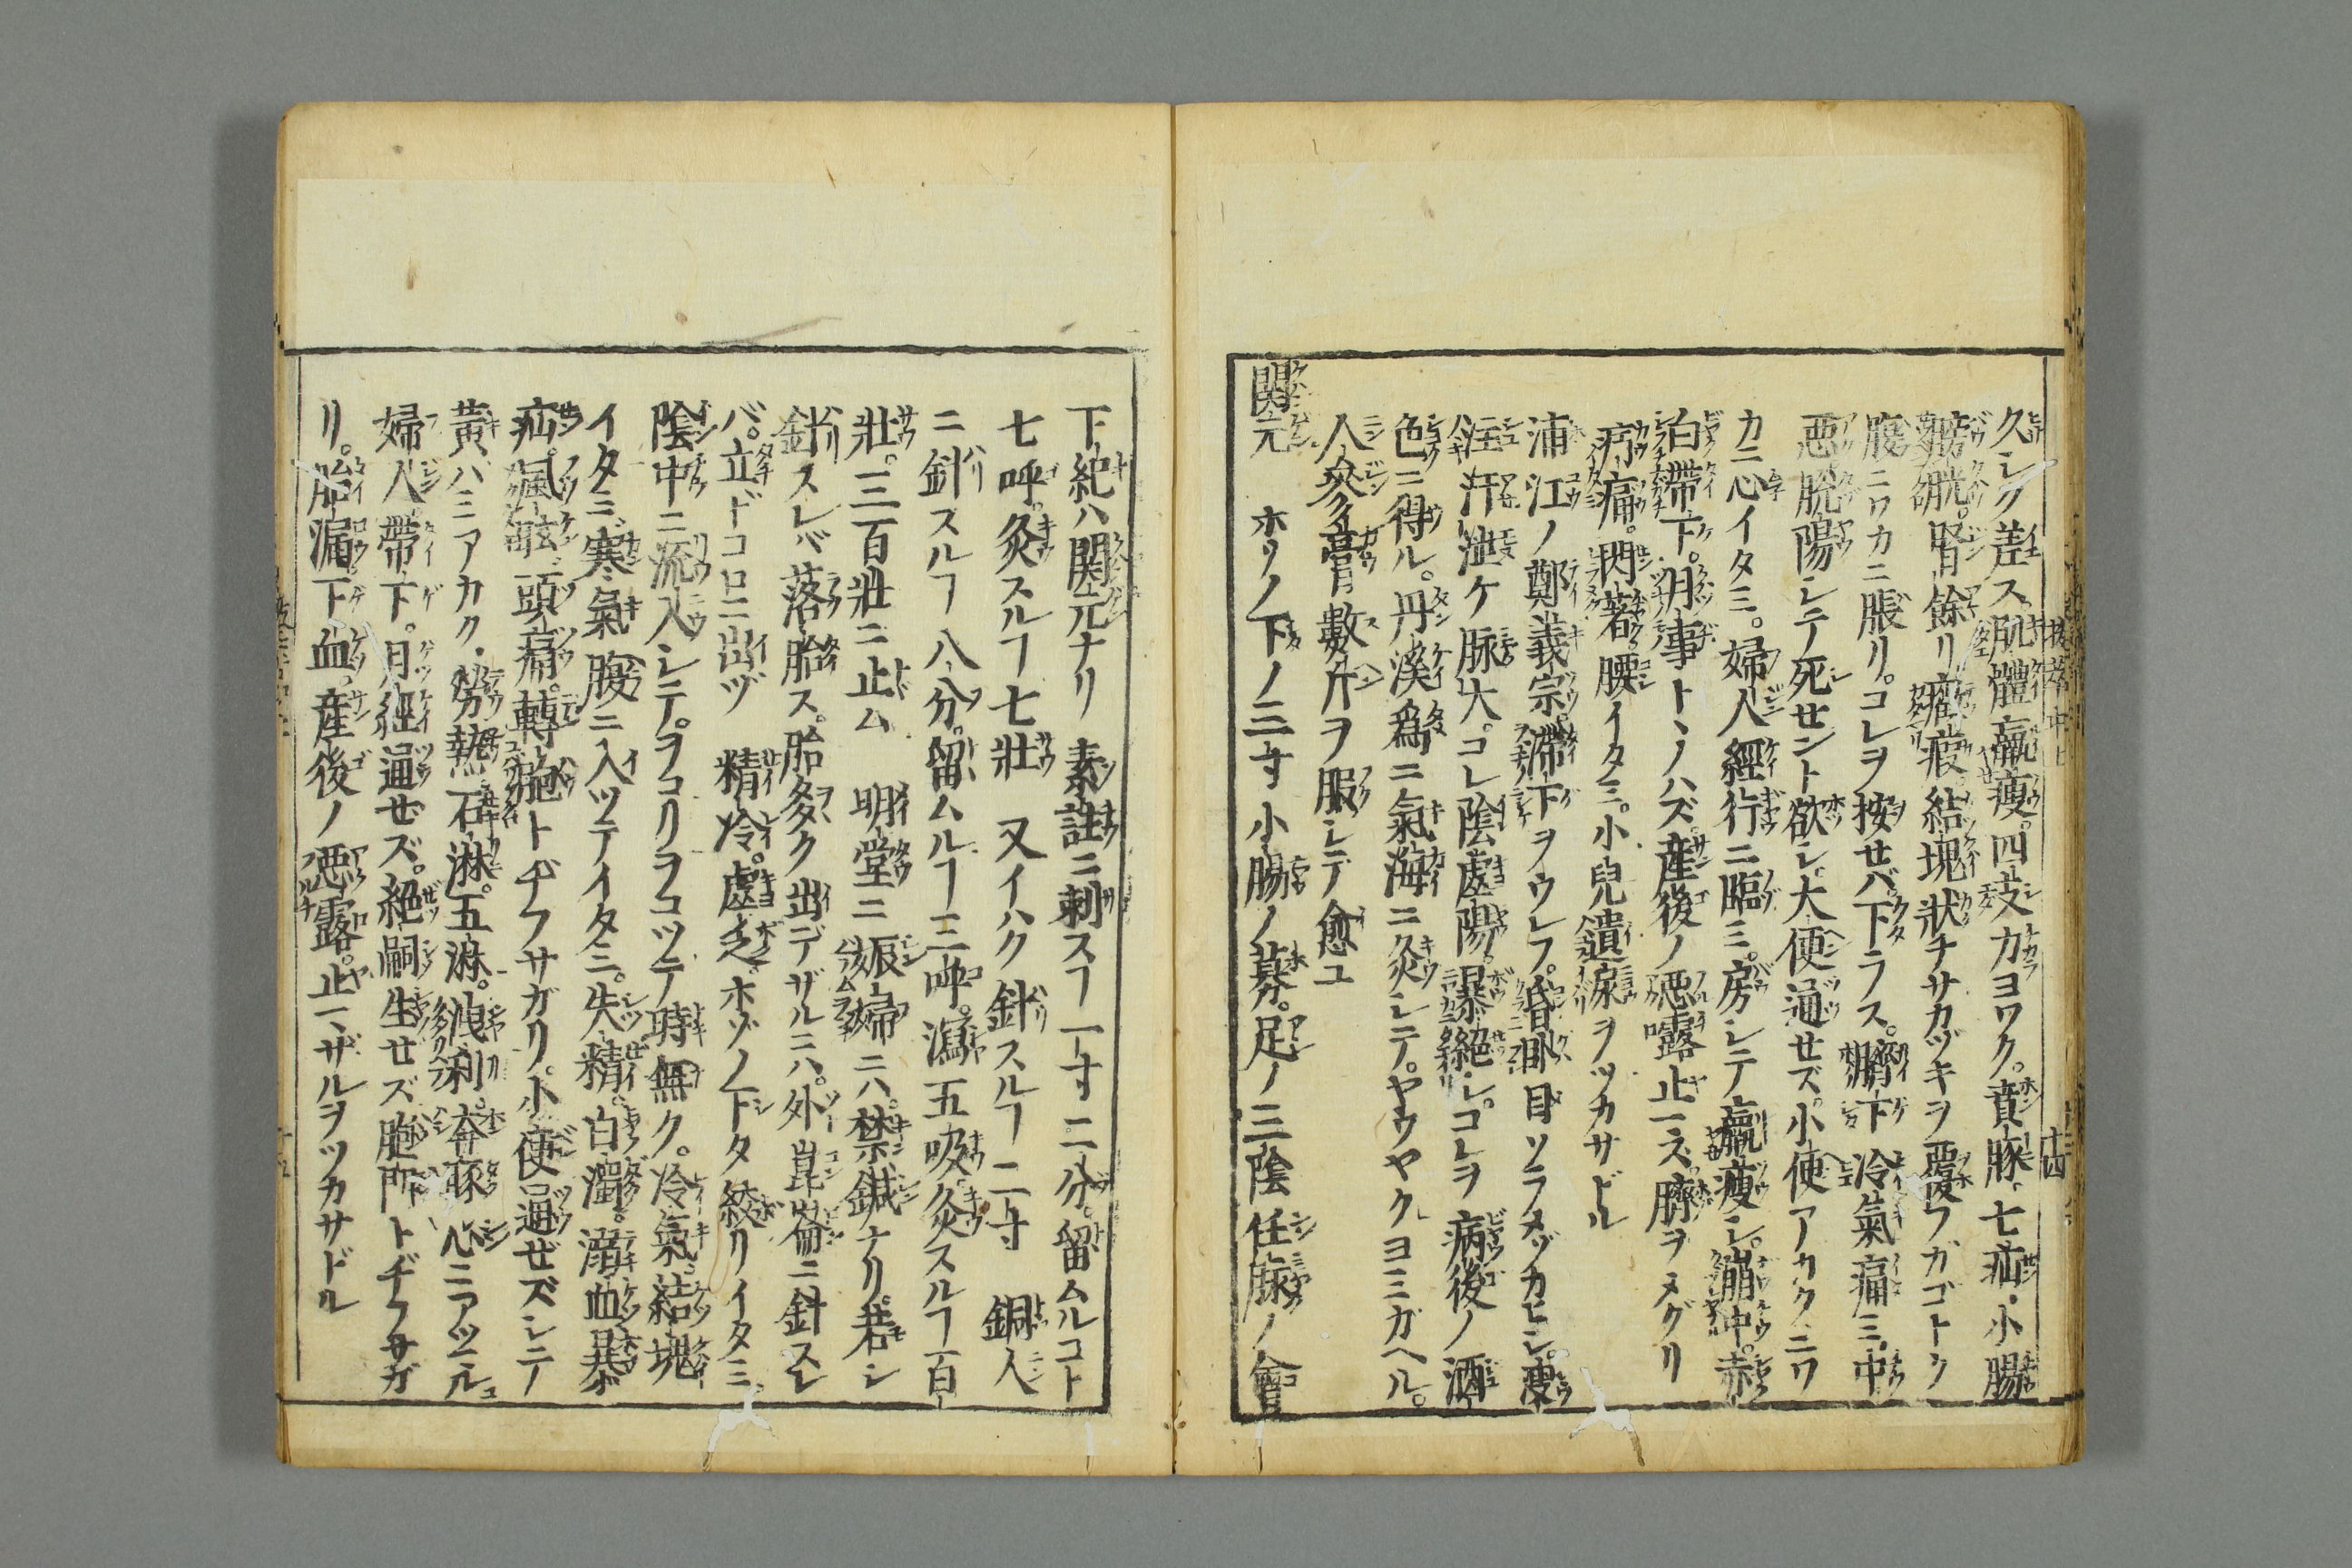 久シク差ス。肌體羸痩。四支力ヨワク。賁豚七疝・小腸
膀胱。腎餘リ癥瘕結塊狀チサカヅキヲ覆フガゴトク
腹ニワカニ脹リ。コレヲ按セバ下ラス。臍下冷氣痛ミ。中
惡脱陽シテ死セント欲シ。大便通セズ。小便アカクニワ
カニ心イタミ。婦人經行ニ臨ミ。房シテ羸瘦シ。崩中。赤
白帶下。月事トヽノハズ。産後ノ惡露止ス臍ヲメグリ
㽲痛。閃著腰イタミ。小兒遺尿ヲツカサドル
浦江ノ鄭義宗。滯下ヲウレフ。昏仆目ソラメヅカヒシ。溲
注汗泄ケ脉大。コレ陰虚陽暴絶シ。コレヲ病後ノ酒
色ニ得ル。丹溪爲ニ氣海ニ灸シテ。ヤウヤクヨミガヘル。
人參膏數斤ヲ服シテ愈ユ
関元 ホソノ下ノ三寸小腸ノ募。足ノ三陰任脉ノ會
下紀ハ関元ナリ 素註ニ刺スヿ一寸二分。留ムルコト
七呼。灸スルヿ七壯 又イハク針スルヿ二寸 銅人
ニ針スルヿ八分。留ムルヿ三呼。瀉五吸。灸スルヿ百
壯。三百壯ニ止ム 明堂ニ娠婦ニハ禁鍼ナリ。若シ
針スレバ落胎ス。胎多ク出デザルニハ。外崑崙ニ針スレ
バ。立ドコロニ出ヅ 精冷。虚乏。ホゾノ下タ絞リイタミ
陰中ニ流入シテ。ヲコリヲコツテ時無ク。冷氣結塊
イタミ。寒氣腹ニ入ツテイタミ。失精。白濁。溺血暴
疝。風眩頭痛。轉脬トヂフサガリ。小便通ぜズシテ
黄ハミアカク・勞熱石淋。五淋。洩利。奔豚心ニアツマル
婦人帶下。月經通ぜズ。絶嗣生ぜズ胞門トヂフサガ
リ。胎漏下血。産後ノ惡露。止マザルヲツカサドル